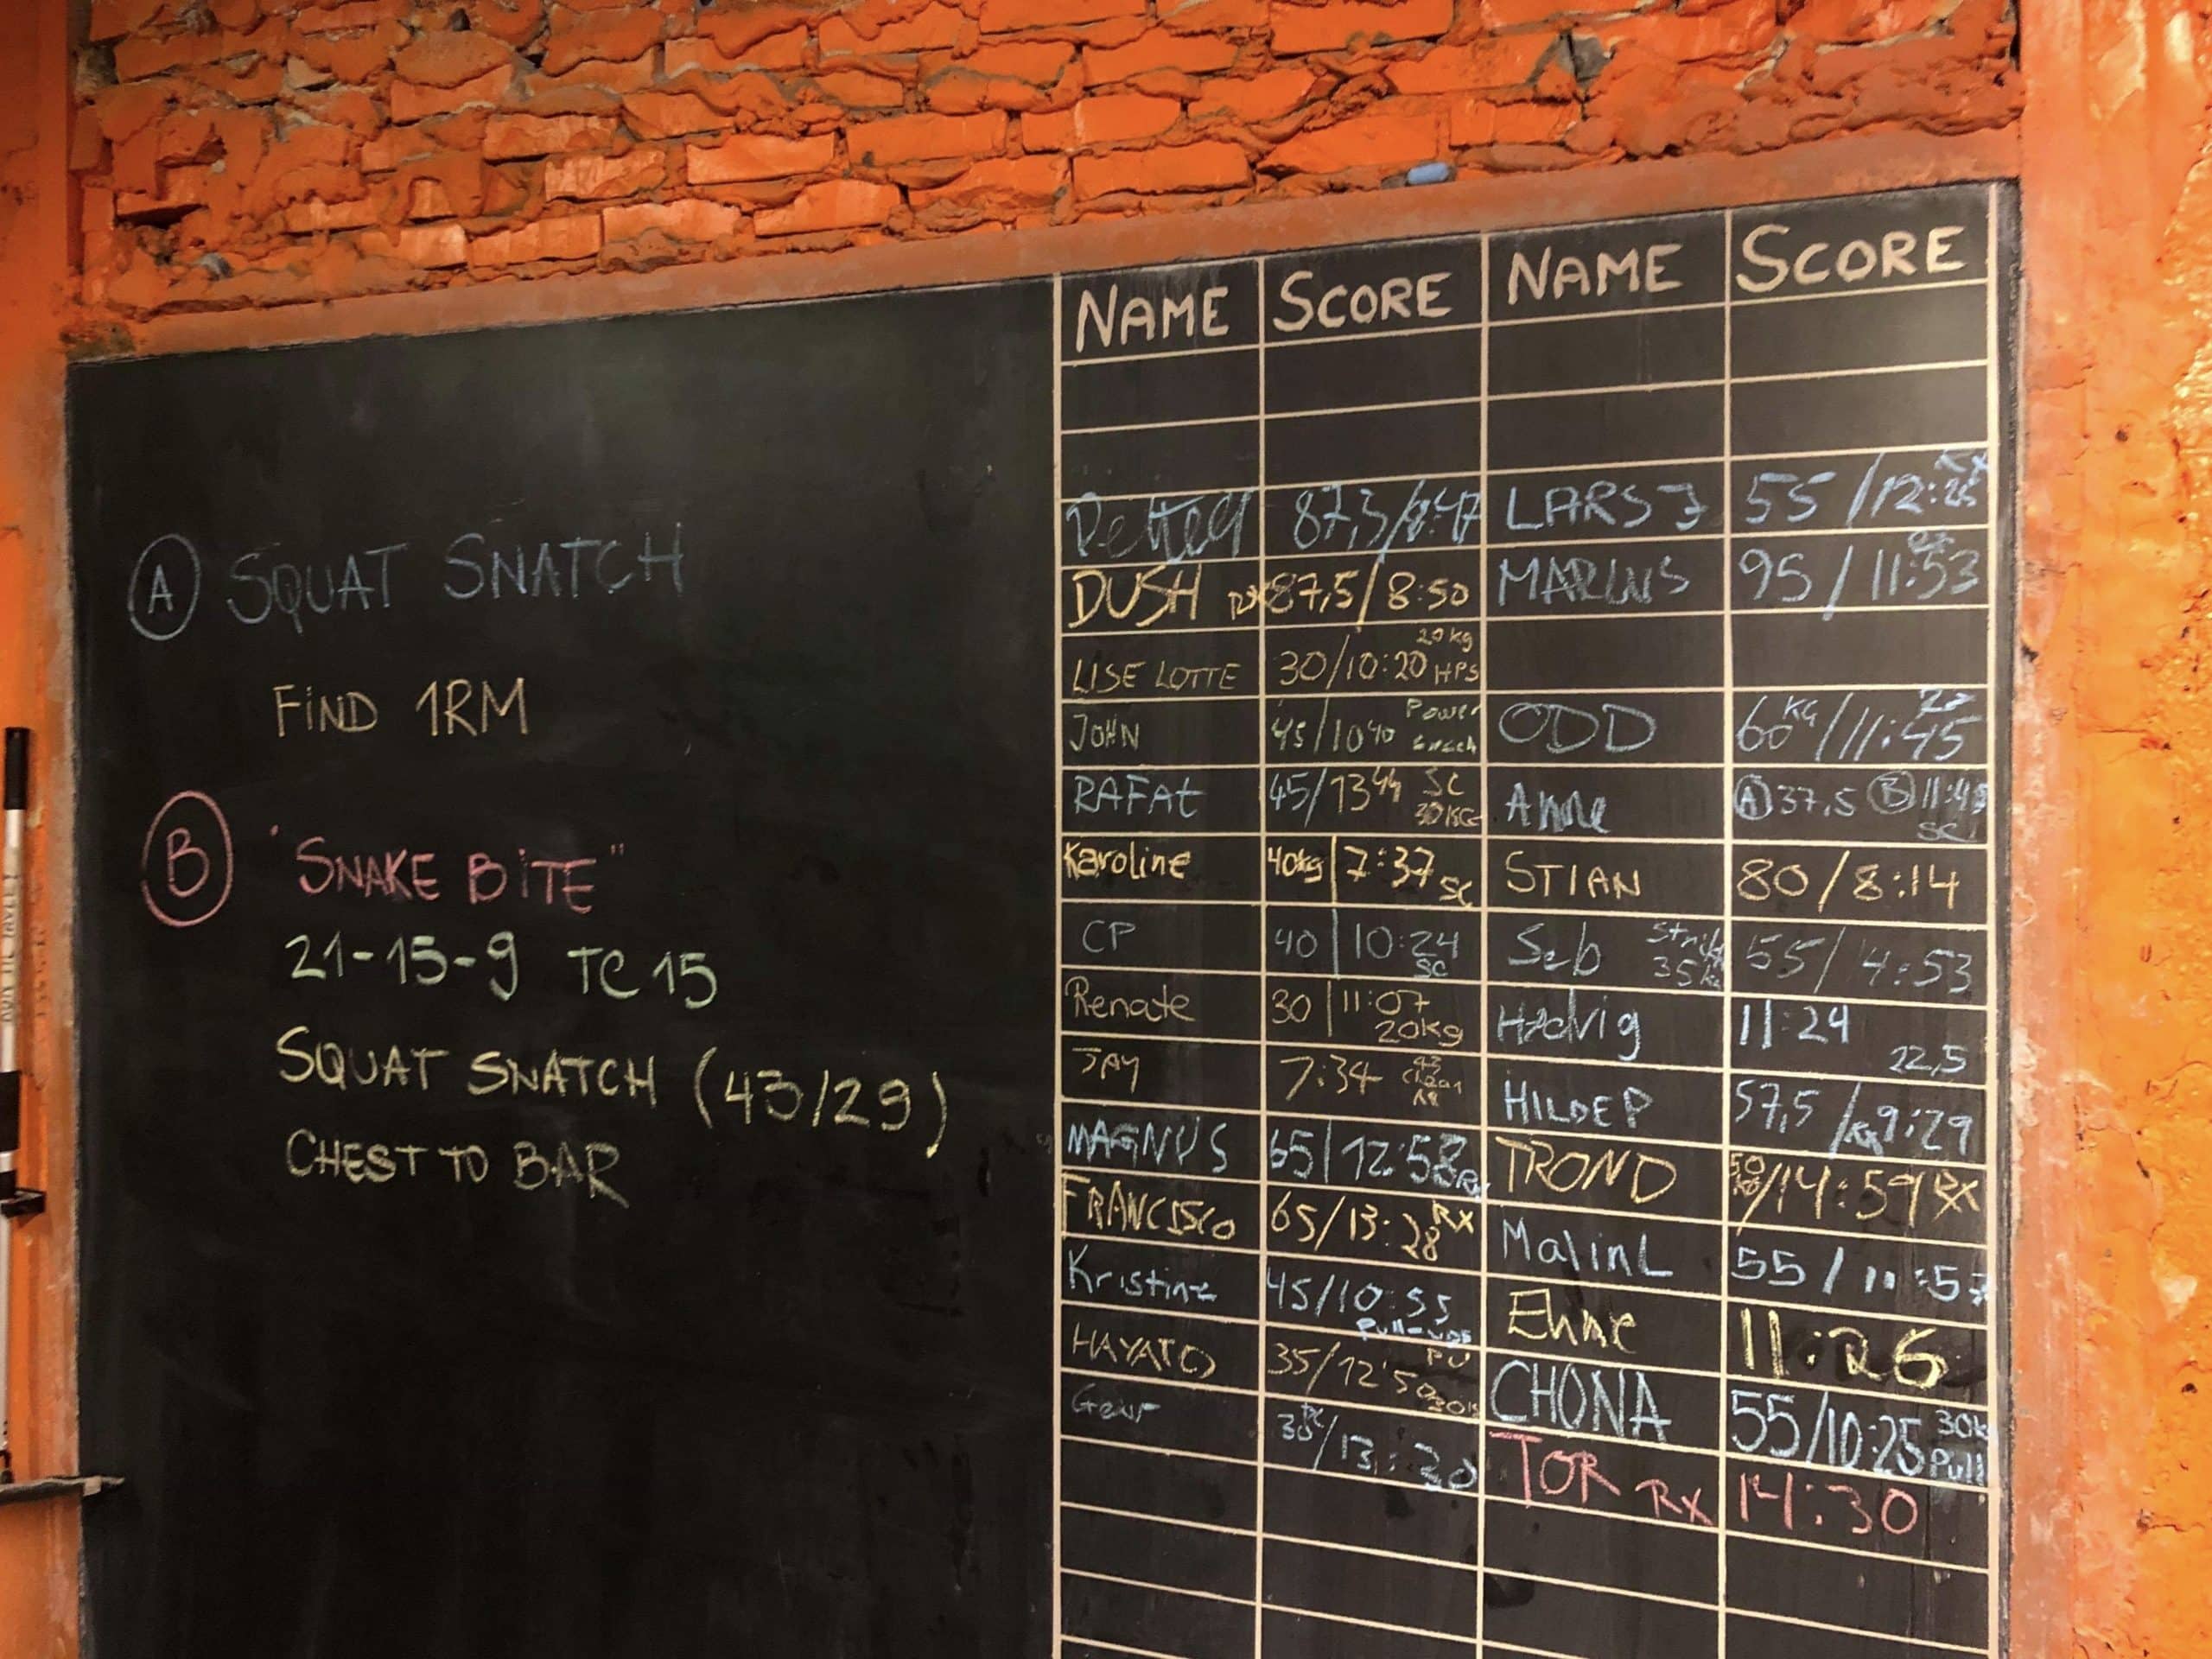 A SQUAT SNATCH
FIND 1RM
B "SNAKE BITE"
21-15-9 TC 15
SQUAT SNATCH (43/29)
CHEST TO BAR
NAME SCORE NAME SCORE
LARS J 55/12:
DUSH RX 87,5/8:50 MARIUS 95/11:53
LISE LOTTE 30/10:20 20kg HPS
JOHN 45/1040 Power ODD 60KG/11:45
RAFAt 45/1344 SC 30KG A 37,5 B 11:45 SC
Karoline 40kg|7:37 SC STIAN 80/8:14
CP 40|10:24 SC Seb 55/4:53
Renate 30|11:07 20kg Hedvig 11:24 22,5
JAY 7:34 43 Clean HILDE P 57,5/9:29
MAGNUS 65|12:58 Rx TROND 50/14:59 RX
FRANCISCO 65/13:28 RX Malin L 55/11:57
Kristine 45/10:55 Pull-ups 11:26
HAYATO 35/12:50 PU CHONA 55/10:25 30k Pull
/13:20 TOR RX 14:30